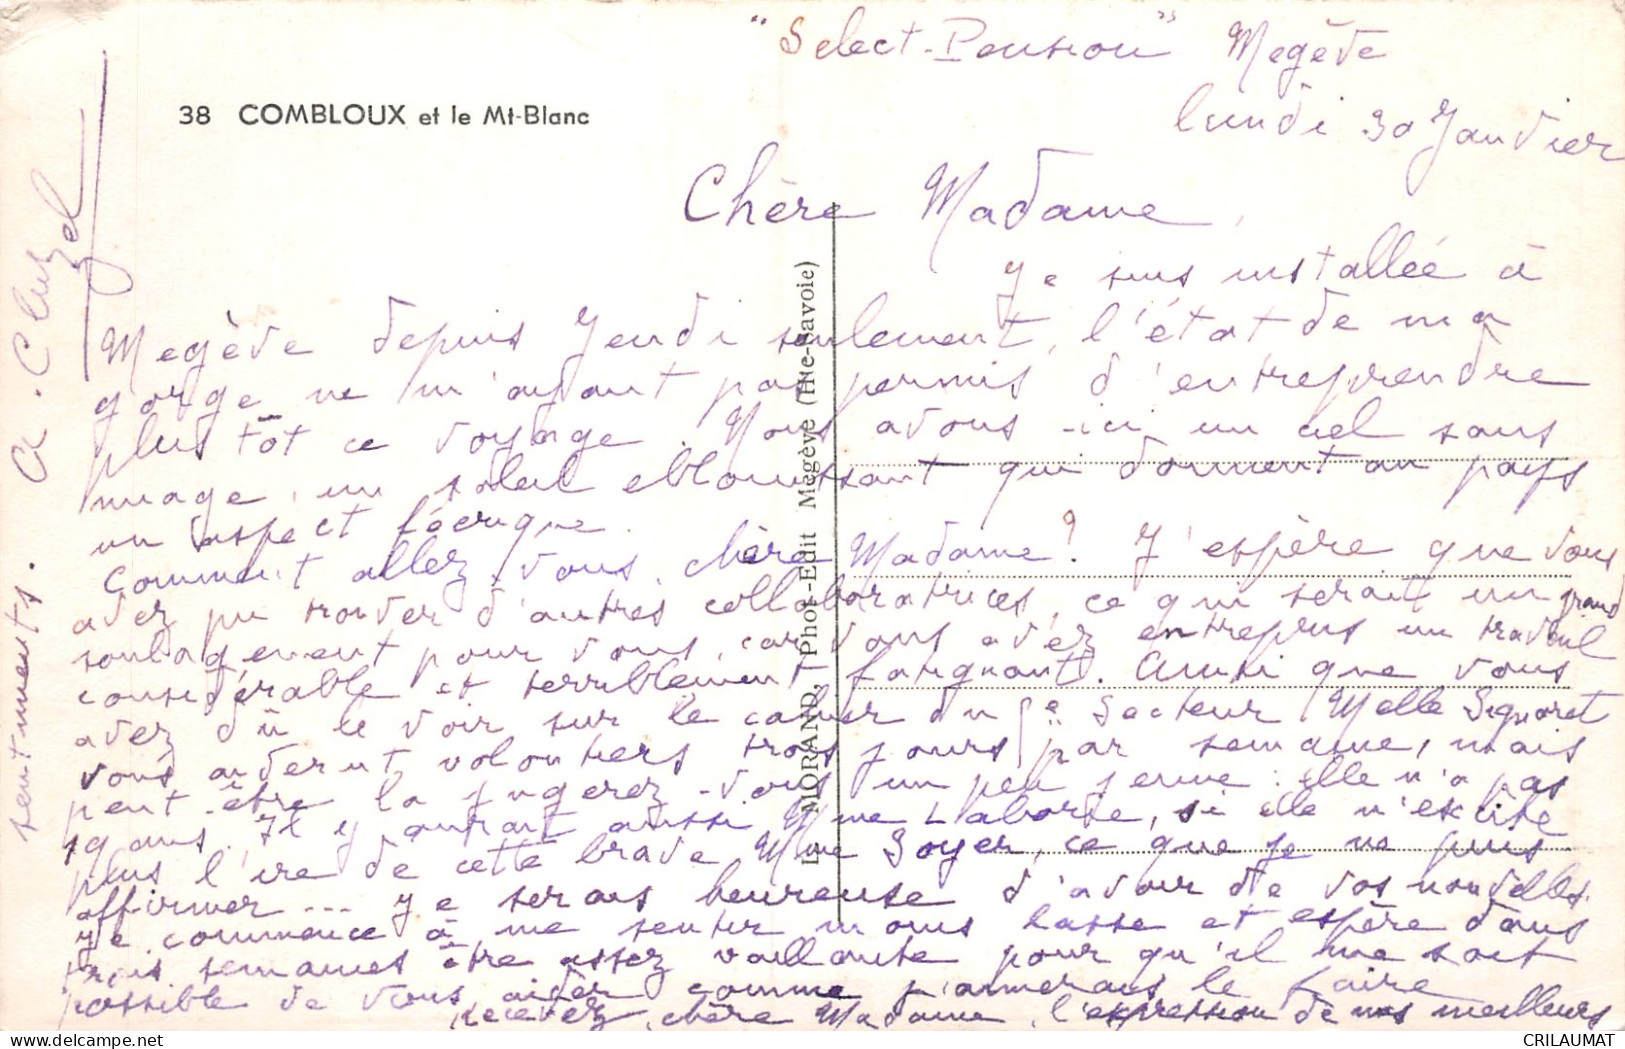 "Select-Pension" Megève
lundi 30 Janvier
38 COMBLOUX et le Mt-Blanc
Chère Madame,
Je suis installée à
Megève depuis Jeudi seulement, l'état de ma
gorge ne m'ayant pas permis d'entreprendre
plus tôt ce voyage. Nous avons ici un ciel sans
nuage, un soleil eblouissant qui donnent au pays
un aspect féerique.
Comment allez-vous, chère Madame? J'espère que vous
avez pu trouver d'autres collaboratrices, ce qui serait un grand
soulagement pour vous, car vous avez entrepris un travail
considérable et terriblement fatiguant. Ainsi que vous
avez dû le voir sur le cahier du secteur Melle Signoret
vous aiderait volontiers trois jours par semaine, mais
peut-être la jugerez-vous un peu jeune : elle n'a pas
19 ans. Il y aurait aussi Mme Laborde, si elle n'excite
plus l'ire de cette brave Mme Soyer, ce que je ne puis
affirmer... Je serais heureuse d'avoir de vos nouvelles.
Je commence à me sentir moins lasse et espère dans
trois semaines être assez vaillante pour qu'il me soit
possible de vous aider comme j'aimerais le faire
Recevez, chère Madame, l'expression de mes meilleurs
sentiments. A. Cluzel
L. MORAND, Phot.-Edit Megève (Hte-Savoie)
CRILAUMAT